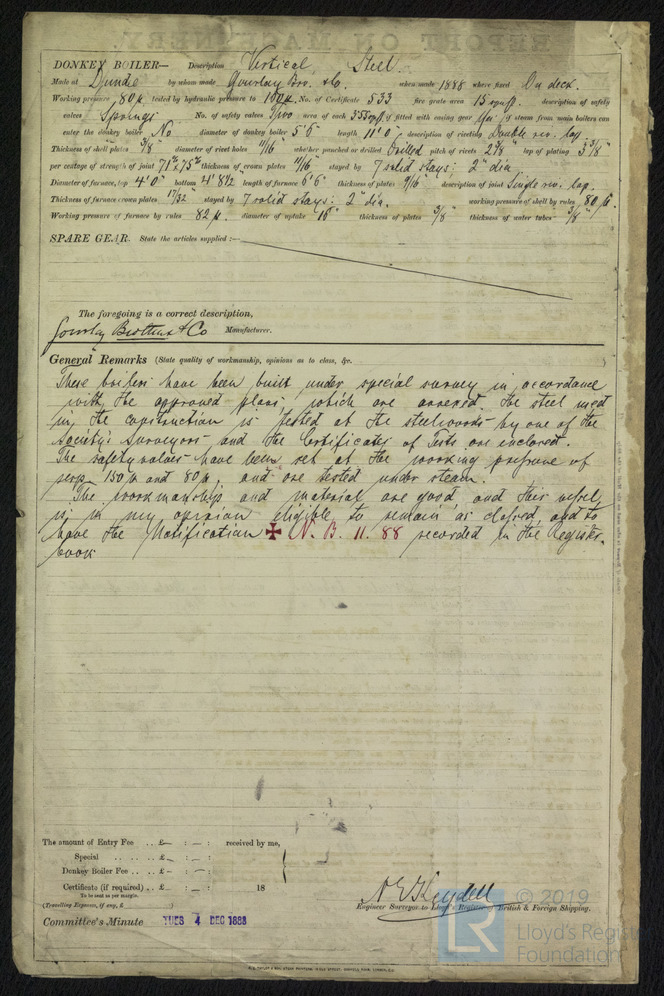 DONKEY BOILER— Description Vertical Steel.
Made at Dundee by whom made Gourlay Bro. & Co. when made 1888 where fixed On deck.
Working pressure 80 tested by hydraulic pressure to 160 No. of Certificate 533 fire grate area 15 description of safety
valves Springs No. of safety valves Two area of each if fitted with easing gear Yes if steam from main boilers can
enter the donkey boiler No diameter of donkey boiler 5'6" length 11'0" description of riveting Double riv. lap
Thickness of shell plates diameter of rivet holes 11/16" whether punched or drilled drilled pitch of rivets lap of plating 3 3/8"
per centage of strength of joint thickness of crown plates 11/16" stayed by 7 solid stays: 2" dia.
Diameter of furnace, top 4'0" bottom 4'8½" length of furnace thickness of plates 9/16" description of joint Single riv. lap.
Thickness of furnace crown plates 17/32" stayed by 7 solid stays: 2" dia. working pressure of shell by rules 80
Working pressure of furnace by rules 82 diameter of uptake thickness of plates 3/8" thickness of water tubes 3/8"
SPARE GEAR. State the articles supplied:—
The foregoing is a correct description,
Gourlay Brothers & Co Manufacturer.
General Remarks (State quality of workmanship, opinions as to class, &c. )
These boilers have been built under special survey in accordance
with the approved plans which are annexed. The steel used
in the construction is tested at the steelworks by one of the
Society's Surveyors and the Certificates of Tests are enclosed.
The safety valves have been set at the working pressure of
150 and 80 and are tested under steam.
The workmanship and material are good and this vessel
is in my opinion eligible to remain as classed and to
have the Notification ✠ N. B. 11. 88 recorded in the Register
book
The amount of Entry Fee . . £ : : received by me,
Special . . . . £ : :
Donkey Boiler Fee . . £ : :
Certificate (if required) . . £ : : 18
To be sent as per margin.
(Travelling Expenses, if any, £ )
Engineer Surveyor to Lloyd's Register of British & Foreign Shipping.
Committee's Minute TUES 4 DEC 1888
© 2019
LR
Lloyd's Register
Foundation